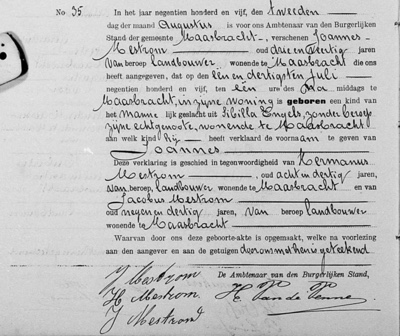 No 35 In het jaar negentien honderd en vijf, den tweeden
dag der maand Augustus is voor ons Ambtenaar van den Burgerlijken
Stand der gemeente Maasbracht, verschenen Joannes
Mestrom oud drie en dertig jaren
van beroep landbouwer wonende te Maasbracht die ons
heeft aangegeven, dat op den een en dertigsten Juli
negentien honderd en vijf, ten een ure des na middags te
Maasbracht, in zijne woning is geboren een kind van
het mannelijk geslacht uit Sibilla Engels, zonder beroep
zijne echtgenoote, wonende te Maasbracht
aan welk kind hij heeft verklaard de voornaam te geven van
Joannes
Deze verklaring is geschied in tegenwoordigheid van Hermanus
Mestrom, oud acht en dertig jaren,
van beroep landbouwer wonende te Maasbracht en van
Jacobus Mestrom
oud negen en dertig jaren, van beroep landbouwer
wonende te Maasbracht
Waarvan door ons deze geboorte-akte is opgemaakt, welke na voorlezing
aan den aangever en aan de getuigen door ons met hen is geteekend
De Ambtenaar van den Burgerlijken Stand,
J Mestrom
H. Mestrom. H. Van de Venne
J Mestrom